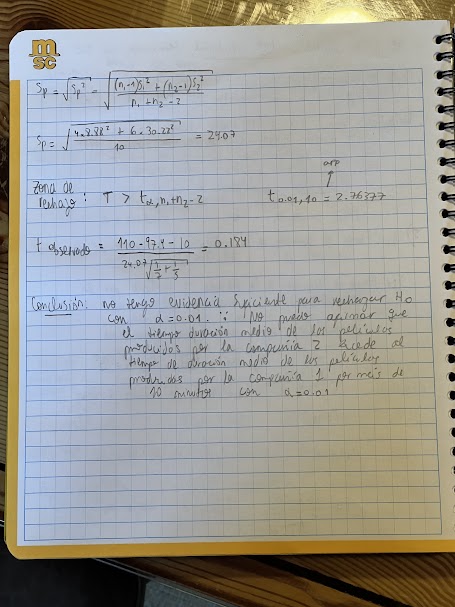 msc
Sp = √Sp² = √((n₁-1)S₁² + (n₂-1)S₂² / n₁+n₂-2)
Sp = √(4×8.88² + 6×30.22² / 10) = 24.07
arp
Zona de rechazo : T > tα, n₁+n₂-2 t0.01, 10 = 2.76377
t observado = 110 - 97.4 - 10 / 24.07√(1/7 + 1/5) = 0.184
Conclusión: no tengo evidencia suficiente para rechazar H₀
con α=0.01. ∵ No puedo afirmar que
el tiempo duración medio de las películas
producidas por la compañía 2 excede al
tiempo de duración medio de las películas
producidas por la compañía 1 por más de
10 minutos con α=0.01